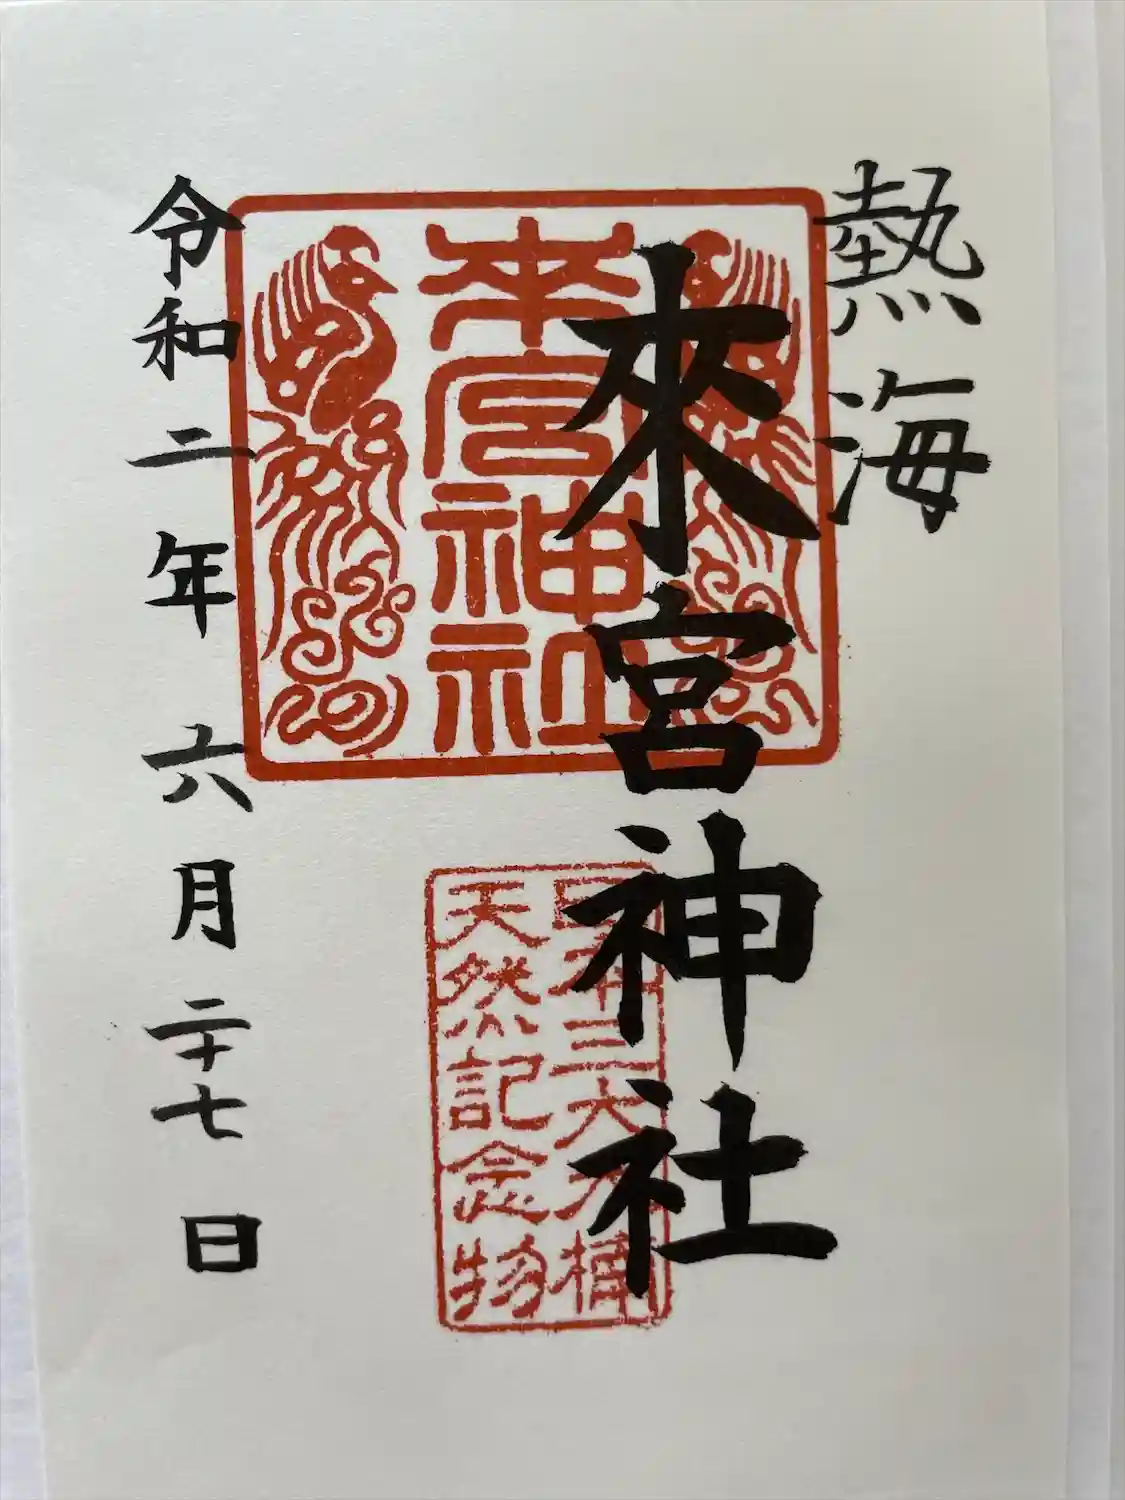 熱海
來宮神社
令和二年六月二十七日
來宮神社
日本三大大楠
天然記念物